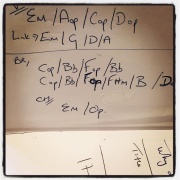 V/ Em / Aop / Cop / Dop
Link → Em / G / D / A
BR/ Cop / Bb / Fop / Bb
Cop / Bb / Fop / F#m / B / D
CH/ Em / Op.
Why
Title